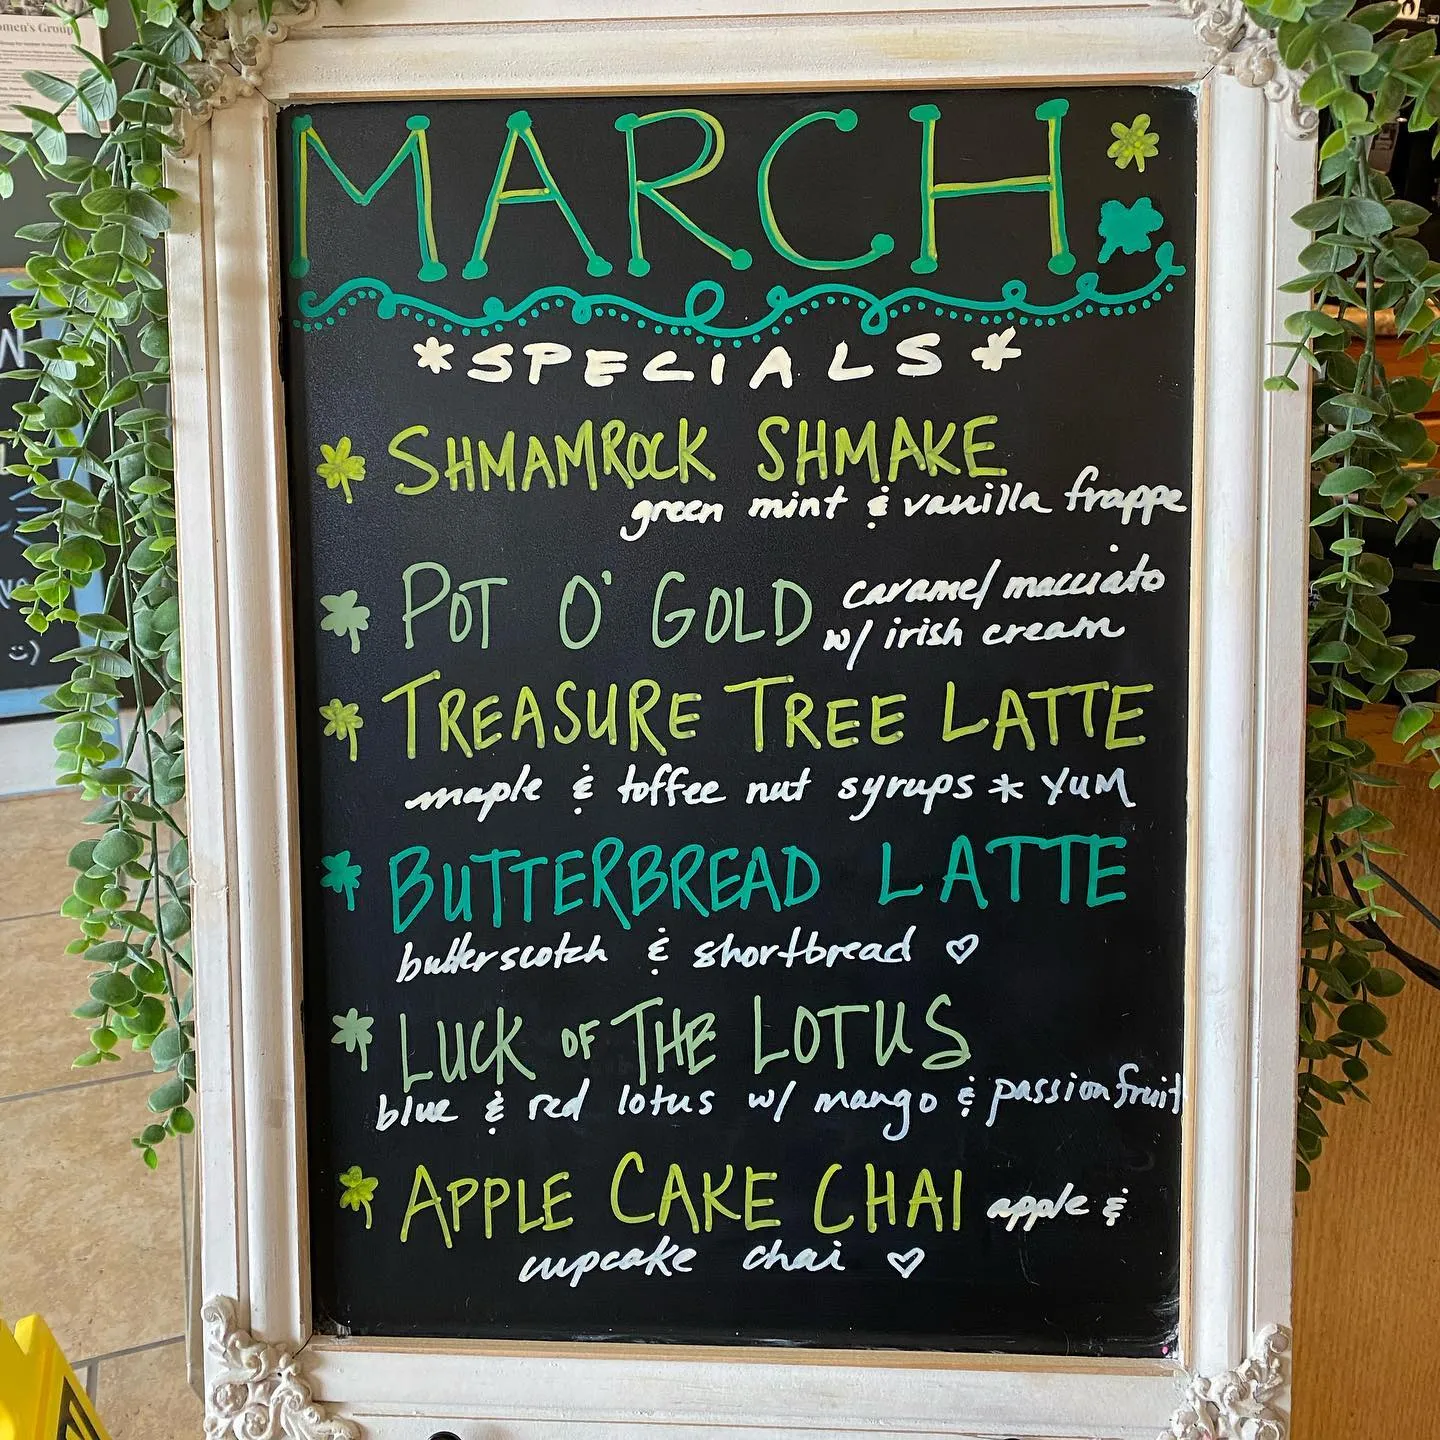 omen's Group
MARCH
*SPECIALS*
SHMAMROCK SHMAKE
green mint & vanilla frappe
POT O' GOLD caramel macciato
w/ irish cream
TREASURE TREE LATTE
maple & toffee nut syrups * YUM
BUTTERBREAD LATTE
butterscotch & shortbread ♡
LUCK OF THE LOTUS
blue & red lotus w/ mango & passionfruit
APPLE CAKE CHAI apple &
cupcake chai ♡
:)